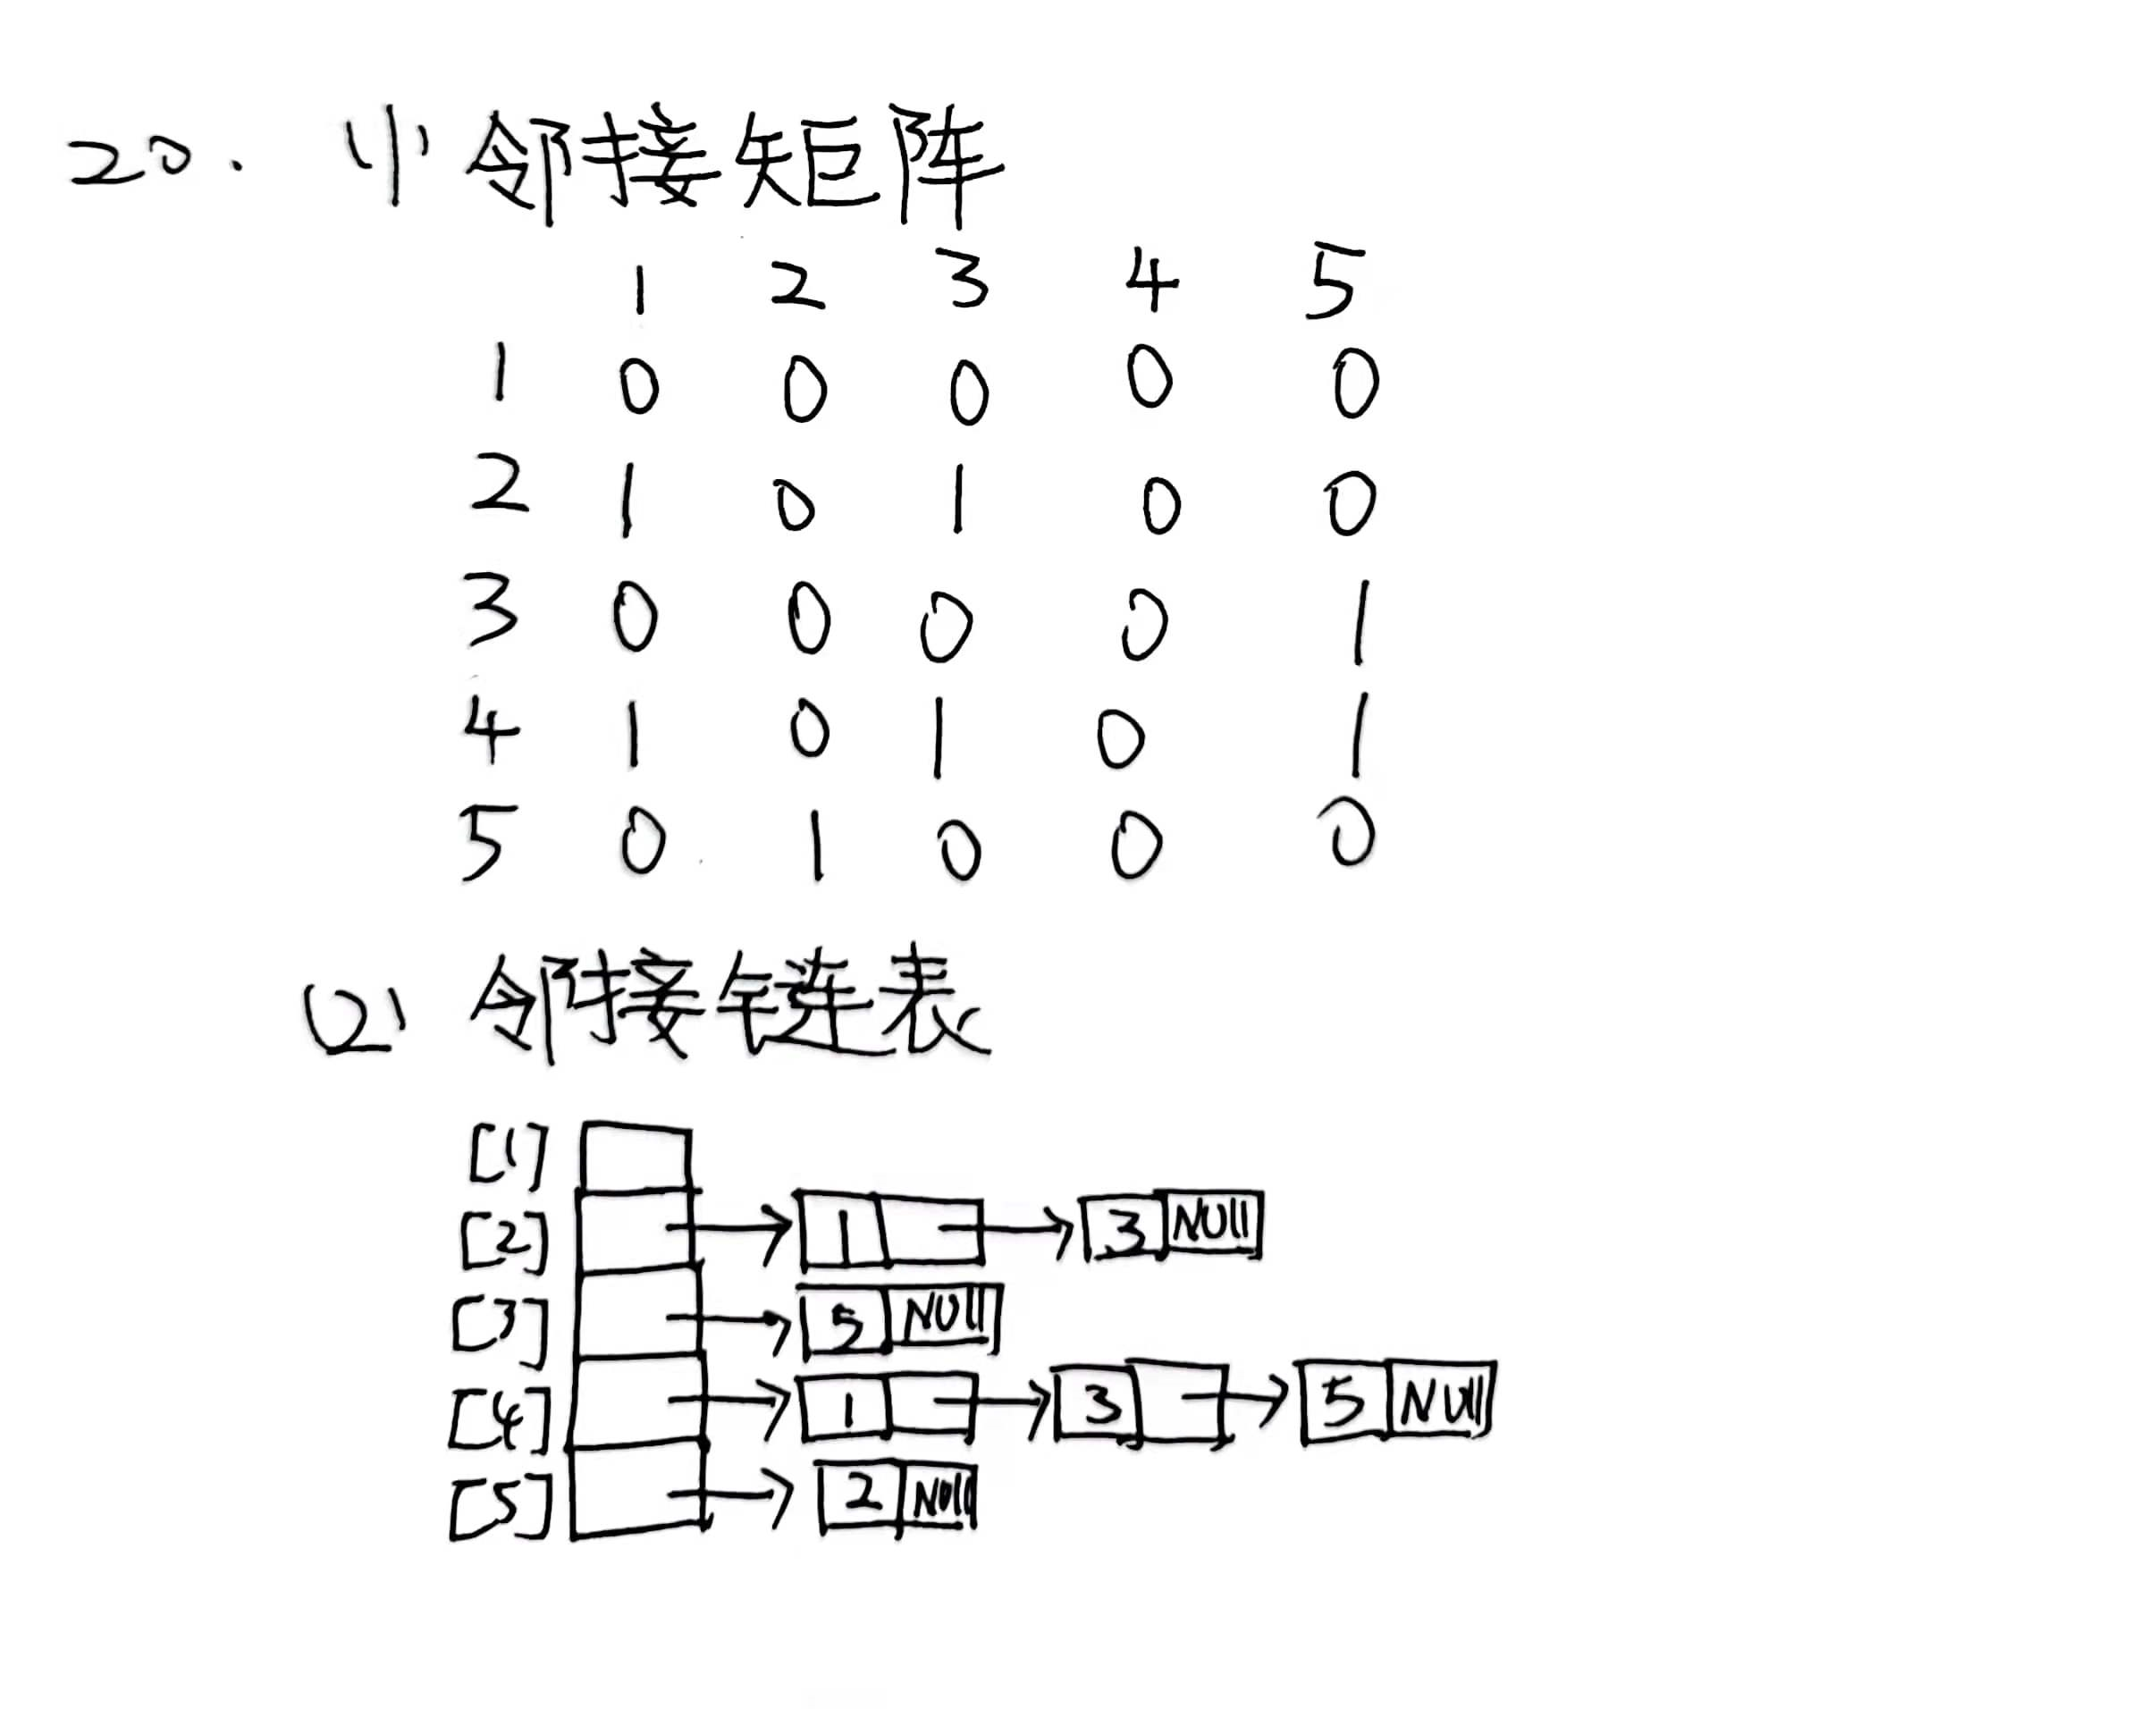 20. (1) 邻接矩阵
1 2 3 4 5
1 0 0 0 0 0
2 1 0 1 0 0
3 0 0 0 0 1
4 1 0 1 0 1
5 0 1 0 0 0
(2) 邻接链表
[1]
[2] 1 3 NUll
[3] 5 NUll
[4] 1 3 5 NUll
[5] 2 NUll